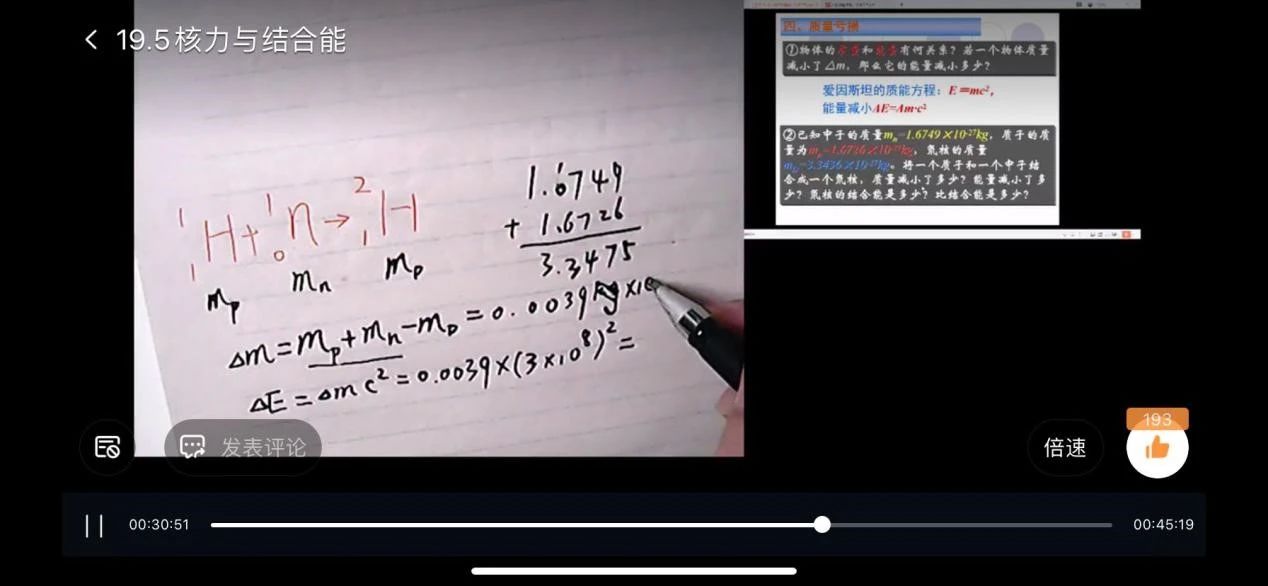 19.5核力与结合能
四、质量亏损
①物体的质量和能量有何关系?若一个物体质量
减小了△m,那么它的能量减小多少?
爱因斯坦的质能方程:E=mc²,
能量减小ΔE=Δm·c²
②已知中子的质量mₙ=1.6749×10⁻²⁷kg,质子的质
量为mₚ=1.6726×10⁻²⁷kg,氘核的质量
m_D=3.3436×10⁻²⁷kg。将一个质子和一个中子结
合成一个氘核,质量减小了多少?能量减小了多
少?氘核的结合能是多少?比结合能是多少?
¹₁H+¹₀n→²₁H
mₚ mₙ m_D
1.6749
+ 1.6726
3.3475
Δm=mₚ+mₙ-m_D=0.0039kg×10
ΔE=Δmc²=0.0039×(3×10⁸)²=
发表评论
倍速
193
00:30:51
00:45:19